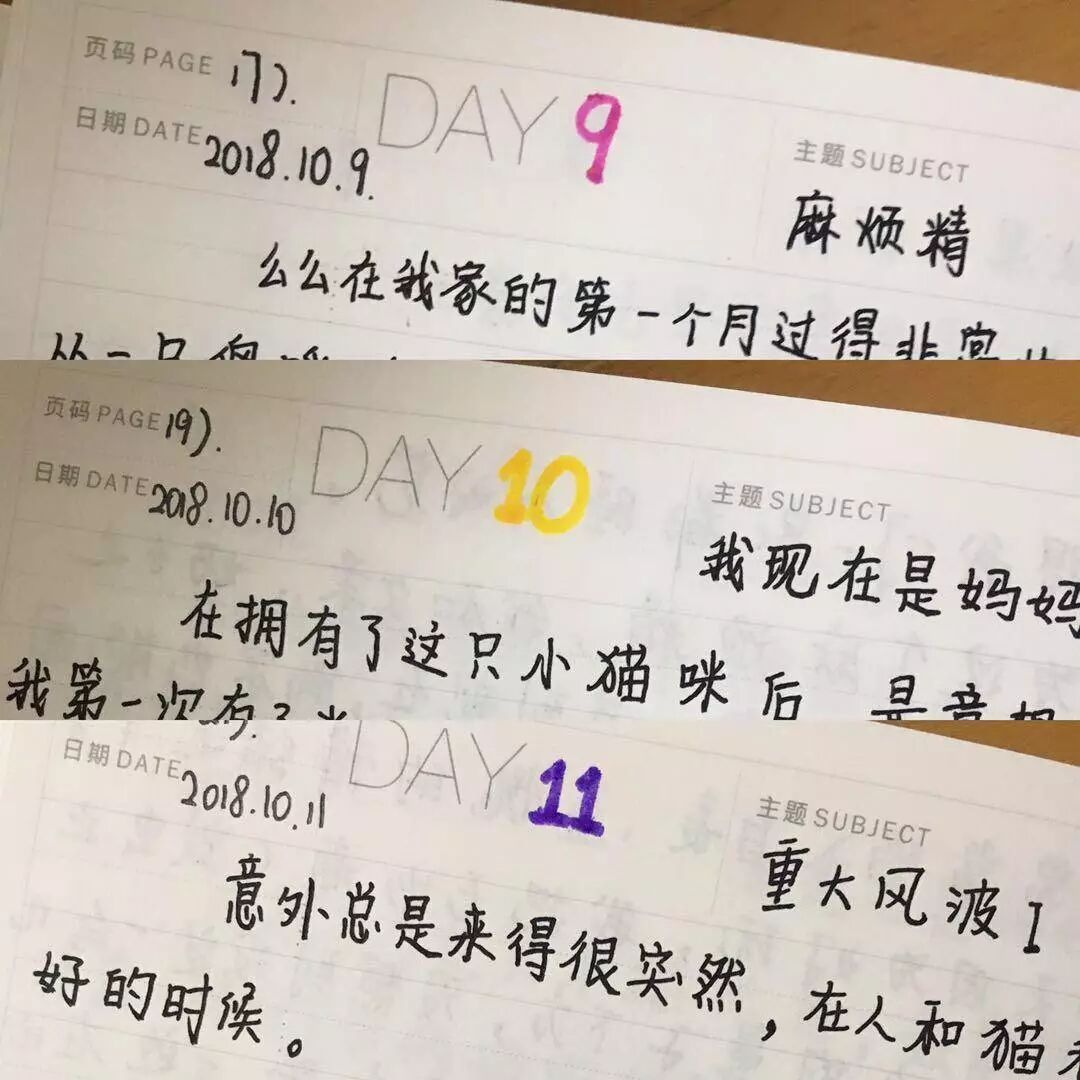 页码 PAGE 17).
DAY 9
日期 DATE 2018.10.9.
主题 SUBJECT
麻烦精
么么在我家的第一个月过得非常
从一只
页码 PAGE 19).
DAY 10
日期 DATE 2018.10.10
主题 SUBJECT
我现在是妈妈
在拥有了这只小猫咪后 是
我第一次有了
日期 DATE 2018.10.11
DAY 11
主题 SUBJECT
重大风波 I
意外总是来得很突然，在人和猫
好的时候。